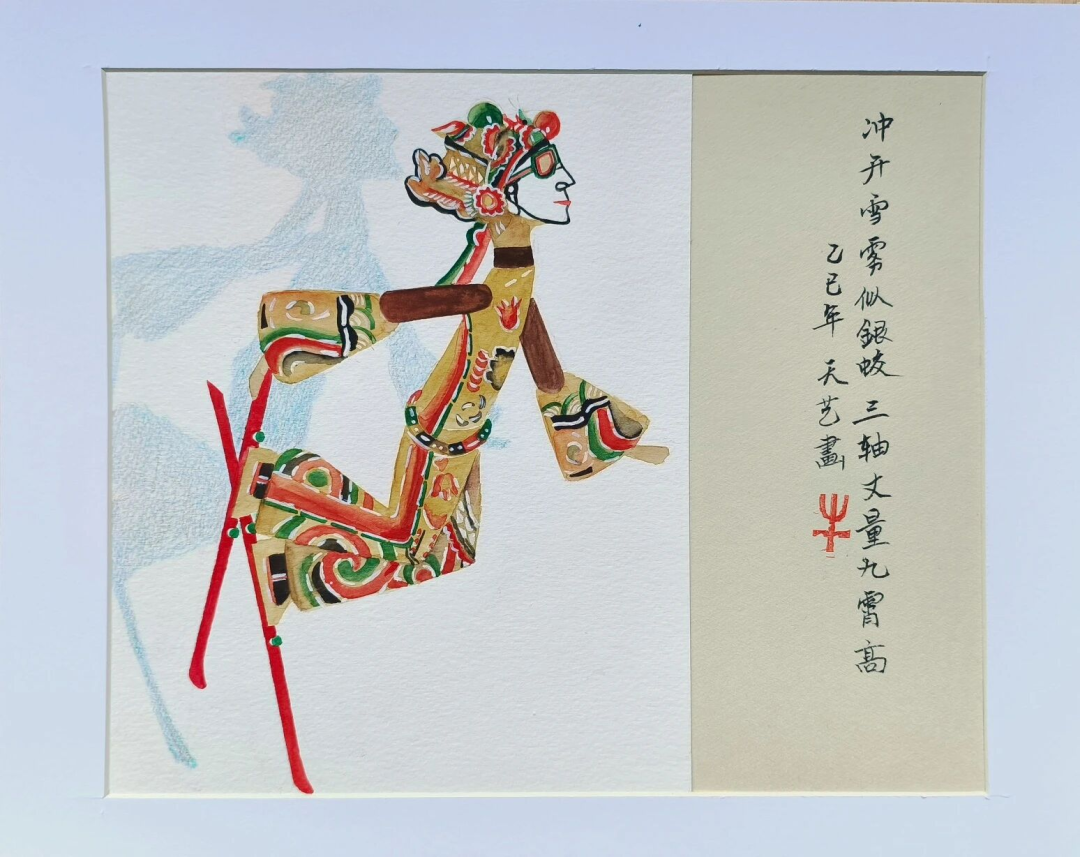 冲开雪雾似銀蛟 三轴丈量九霄髙
乙巳年 天艺畫